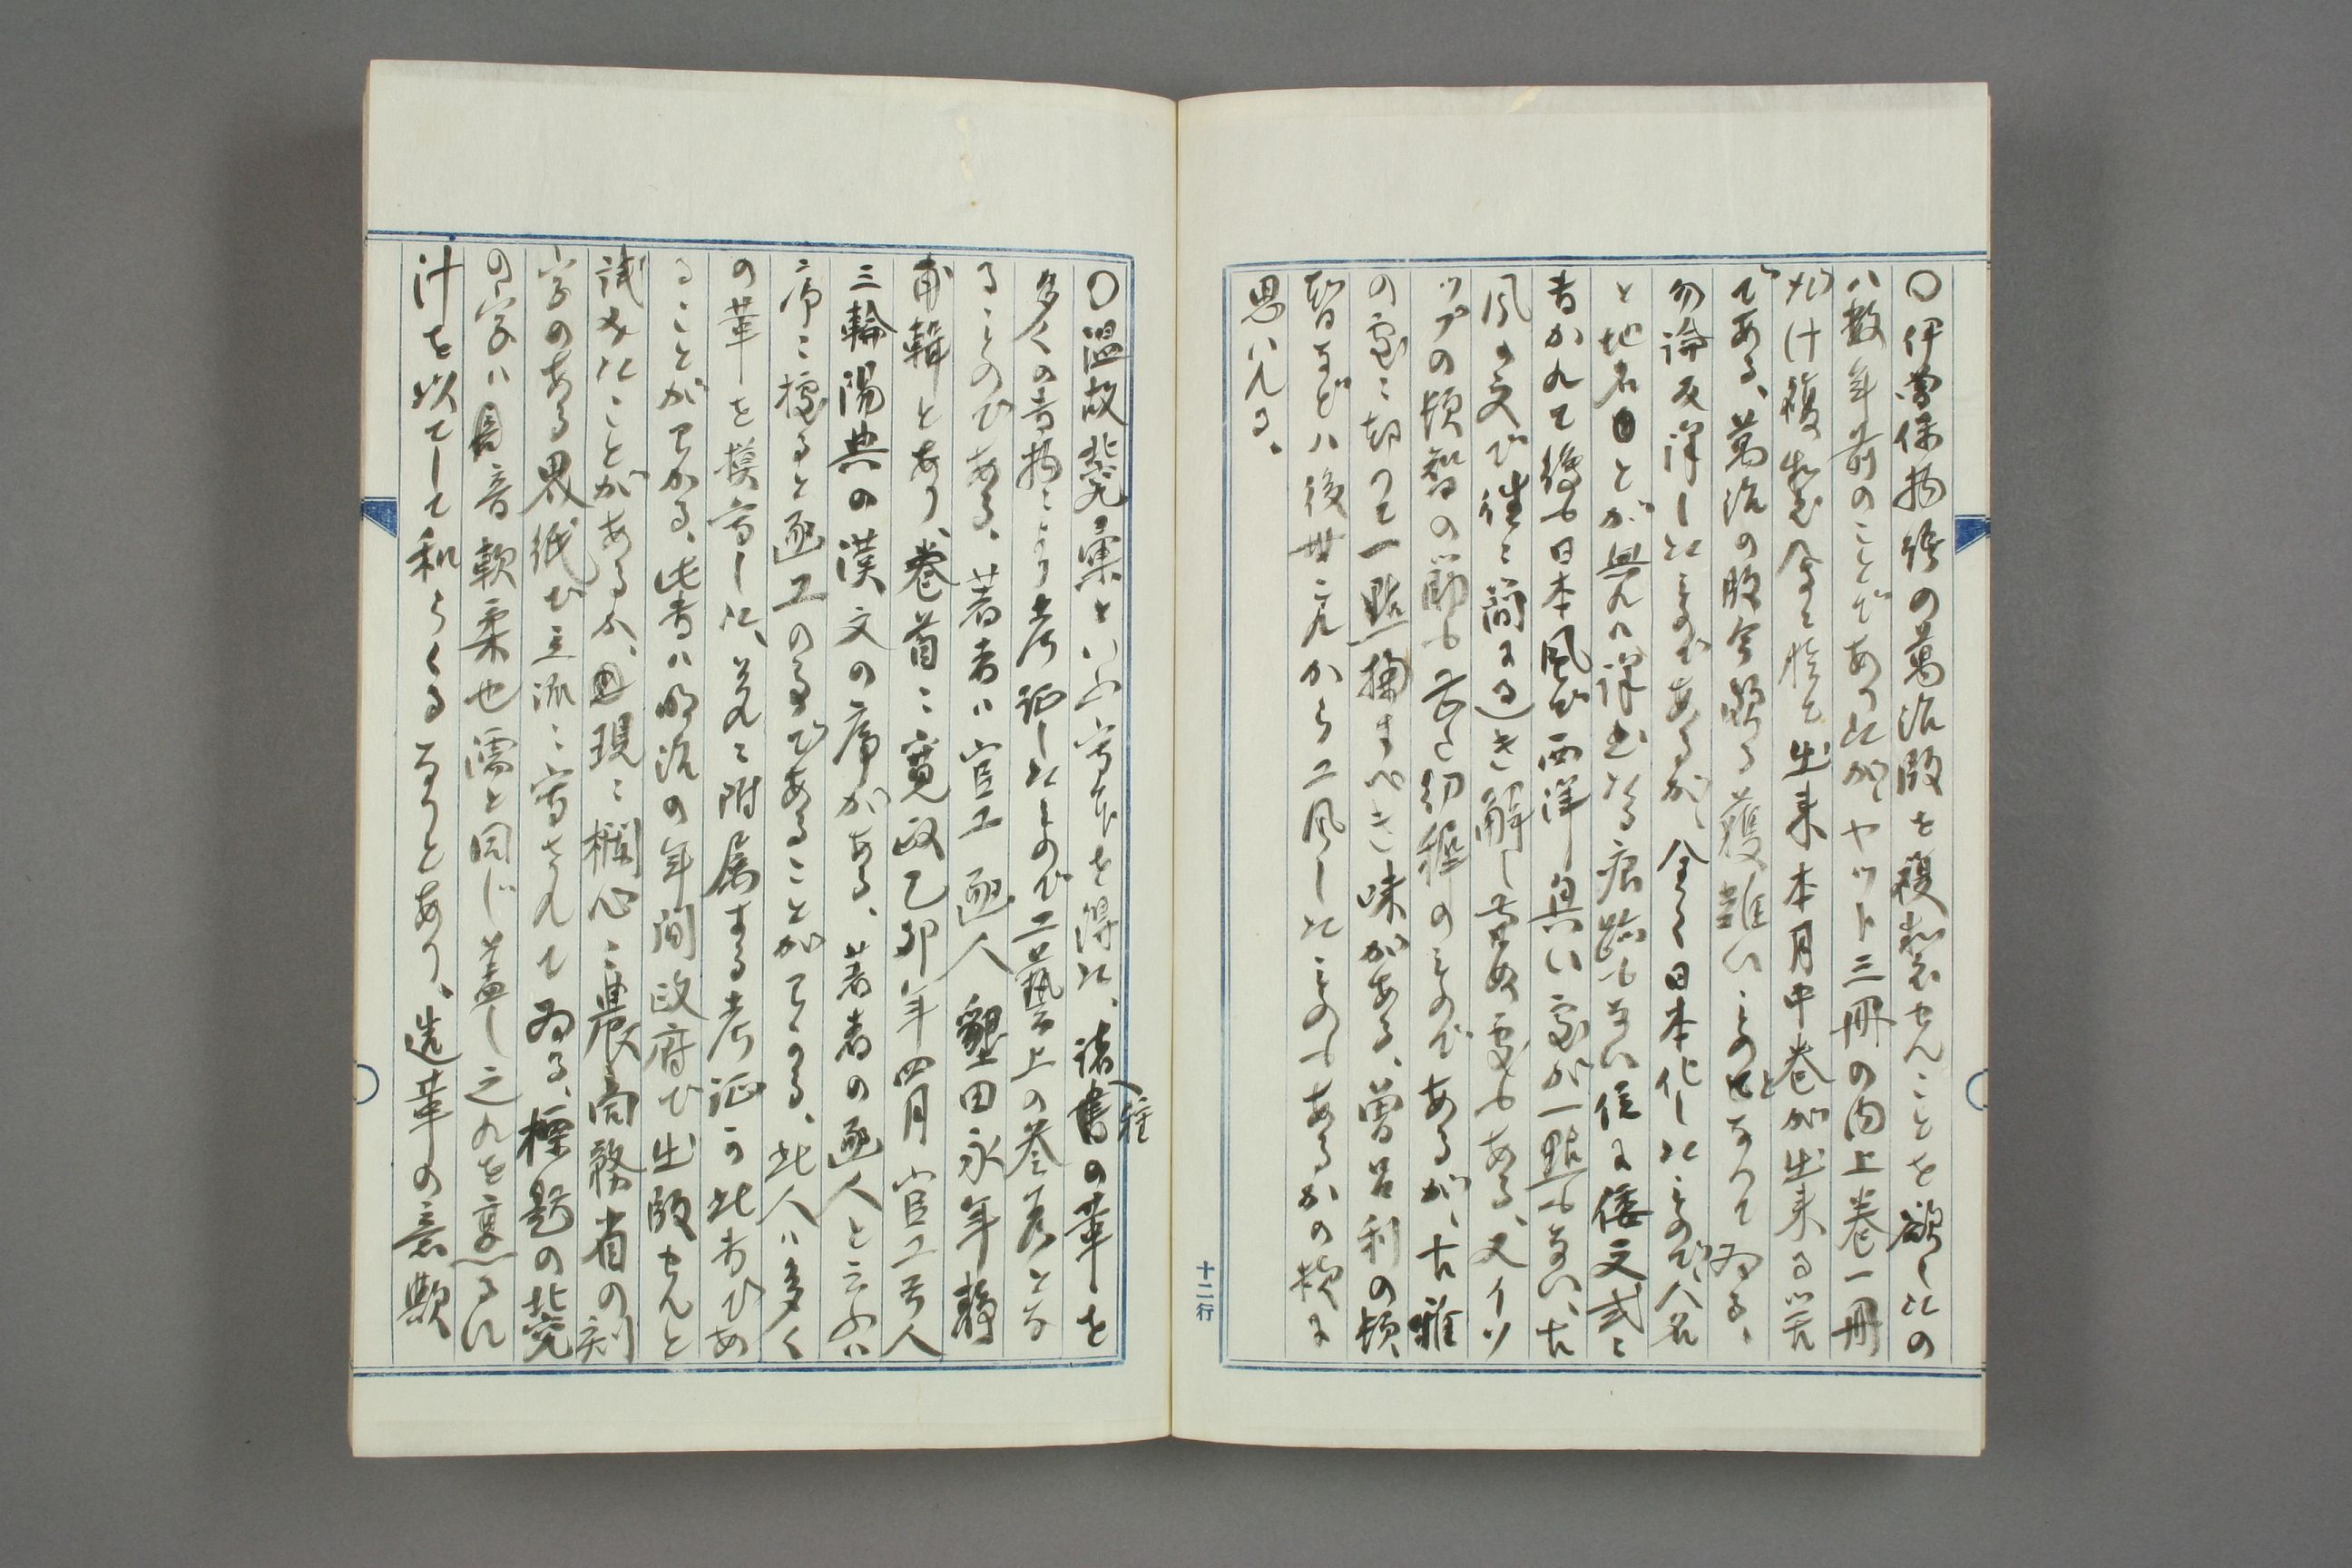 〇伊曽保物語の萬治版を複製せんことを啓したの
ハ数年前のことであつたがヤツト三冊の内上巻一冊
だけ複製全く悉く出来本月中巻が出来る筈
である、萬治の版今頗る獲難いものとなつてゐる、
勿論反譯したものであるが、全く日本化したもので、人名
と地名とが無ければ譯書なる痕跡もない位に倭文式に
書かれて絵も日本風で西洋臭い處が一點もない、古
風の文で往々簡に過き解し兼ぬ處もある、又イソ
ツプの頓智の節も尤も幼稚のものであるが、古雅
の處に却つて一點掬すべき味がある、曽呂利の頓
智などハ後世之れから工風したものもあるかの様に
思ハれる、
十二行
〇温故韋彙といふ写本を得た、諸種の革を
多くの書物により考証したもので工藝上の参考とな
るものである、著者ハ官工凾人 墾田永年静
甫輯とあり、巻首に寛政乙卯年四月官工弓人
三輪陽典の漢文の序がある、著者の凾人と云ふハ
序に據ると凾工のことであることがてゐる、此人ハ多く
の革を摸写した、其れに附属する考証が此書であ
ることがわかる、此書ハ明治の年間政府で出版せんと
試みたことがあるふ、現に欄心に農商務省の刻
字のある罫紙で立派に写されてゐる、標題の韋
の字ハ音軟柔也濡と同じ蓋し之れを裹るに
汁を以てして和らくるなりとあり、造革の意歟